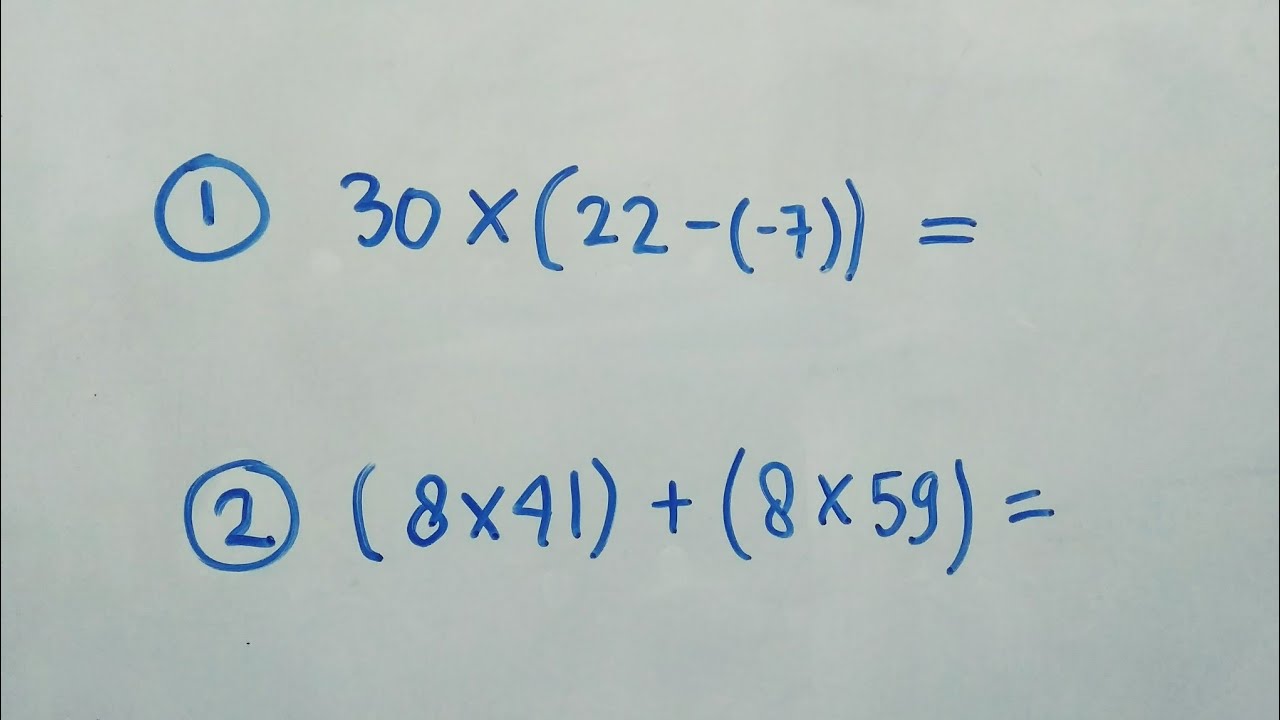 ① 30 × (22 - (-7)) =
② (8 × 41) + (8 × 59) =